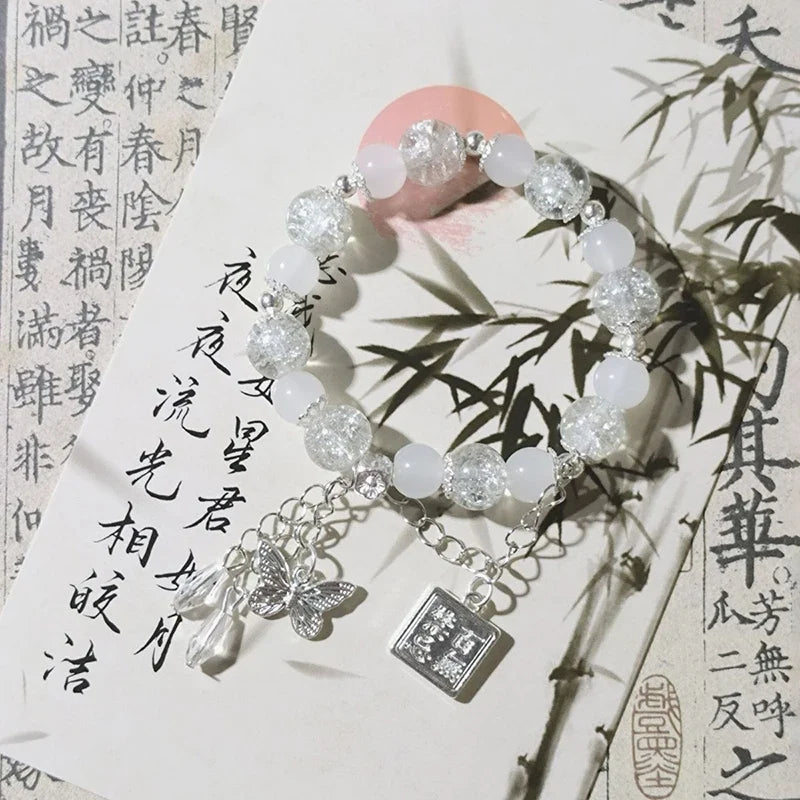 賢
春之月
註。仲春陰陽
之變。有喪禍者。娶
禍之故月數滿雖非仲
我
女星君女月
夜夜流光相皎洁
百無禁忌
天
其華
芳無呼
瓜二反
之